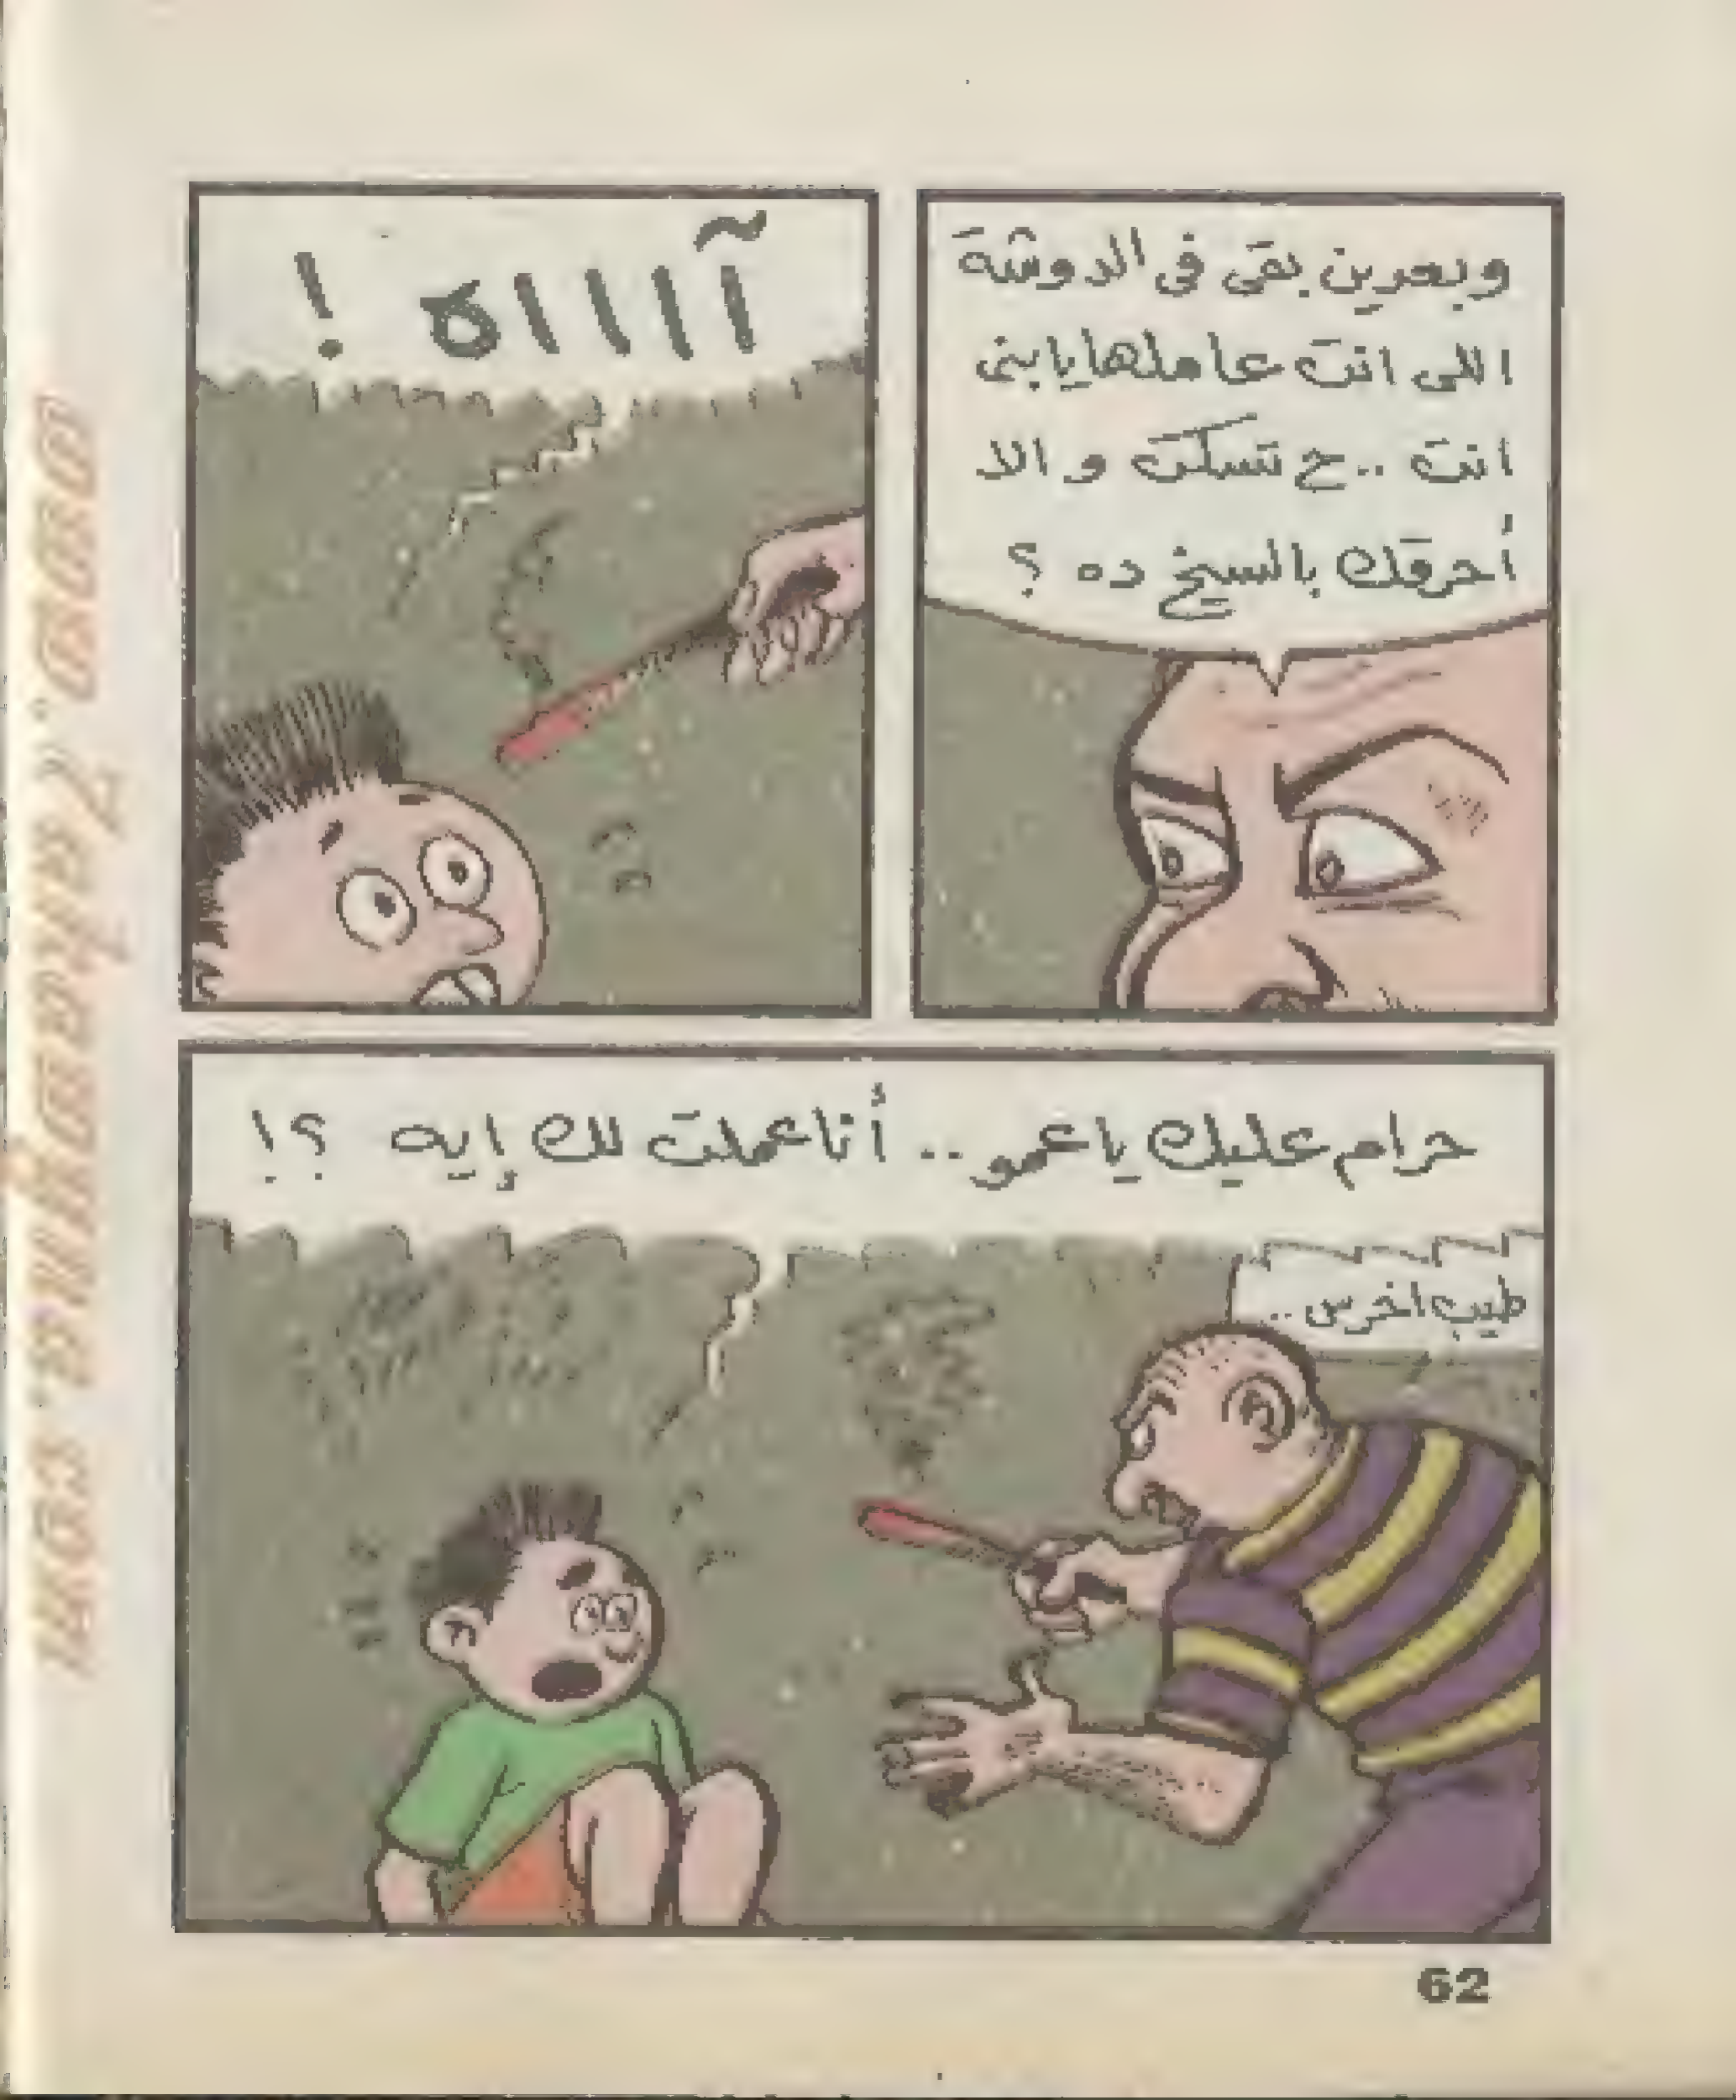 وبعدين بقى فى الدوشة
اللى انت عاملها يا بنى
انت .. ح تسكت والا
أحرقك بالسيخ ده ؟
آاااه !
حرام عليك يا عمو .. أنا عملت لك إيه ؟!
طيب اخرس ..
62